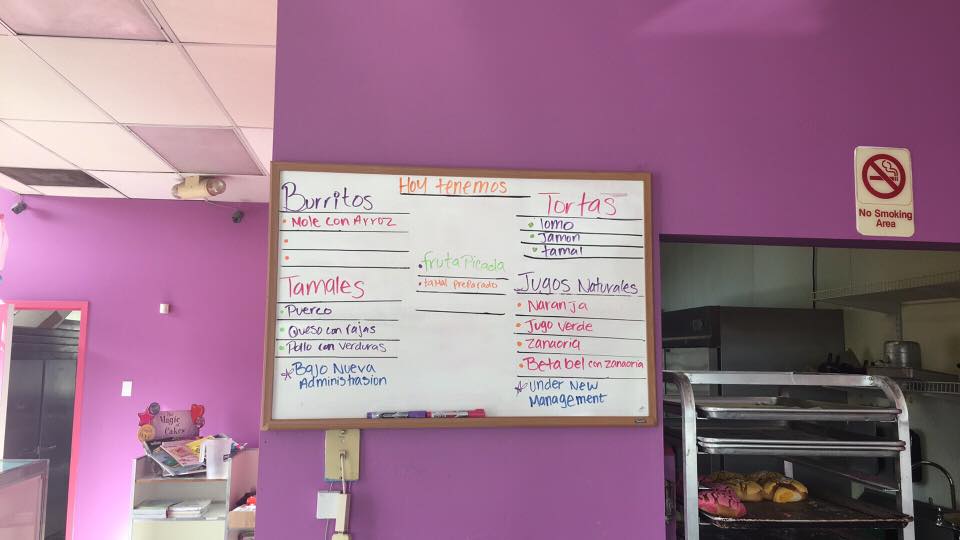 Hoy tenemos
Burritos
Mole con Arroz
Tamales
Puerco
Queso con rajas
Pollo con verduras
*Bajo Nueva
Administrasion
fruta Picada
tamal preparado
Tortas
lomo
Jamon
tamal
Jugos Naturales
Naranja
Jugo verde
Zanaoria
Betabel con zanaoria
*Under New
Management
No Smoking
Area
The
Magic
of
Cakes